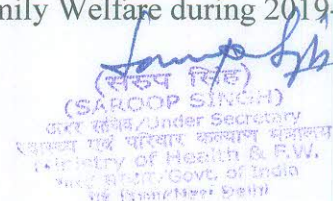 mily Welfare during 2019-
(सरूप सिंह)
(SAROOP SINGH)
अवर सचिव/Under Secretary
स्वास्थ्य एवं परिवार कल्याण मंत्रालय
Ministry of Health & F.W.
भारत सरकार/Govt. of India
नई दिल्ली/New Delhi